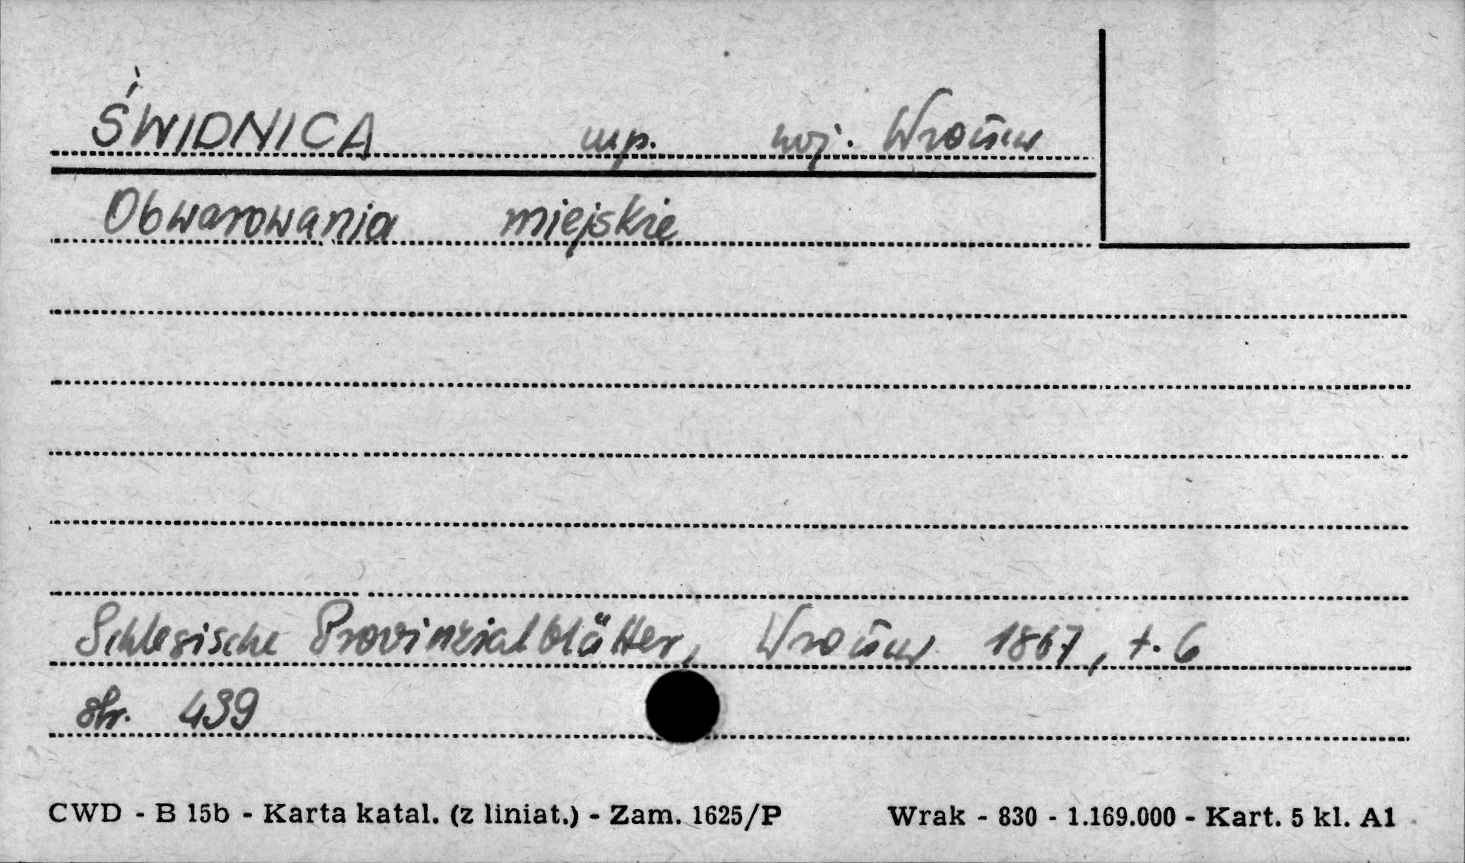 ŚWIDNICA mp. woj. Wrocław
Obwarowania miejskie
Schlesische Provinzialblätter, Wrocław 1867, t. 6
str. 439
CWD - B 15b - Karta katal. (z liniat.) - Zam. 1625/P Wrak - 830 - 1.169.000 - Kart. 5 kl. A1